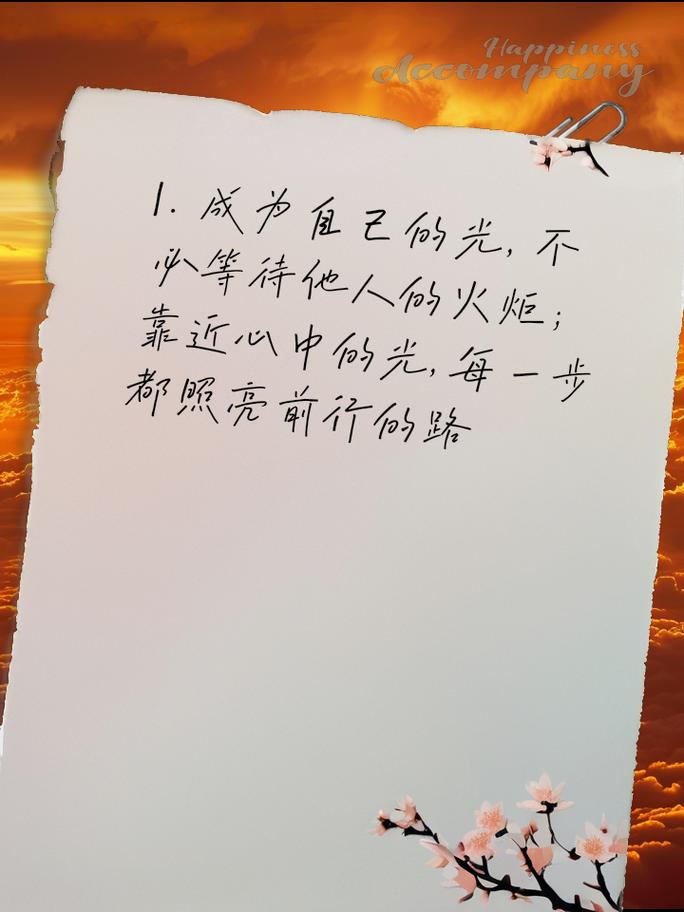 Happiness
Accompany
1. 成为自己的光, 不
必等待他人的火炬;
靠近心中的光, 每一步
都照亮前行的路